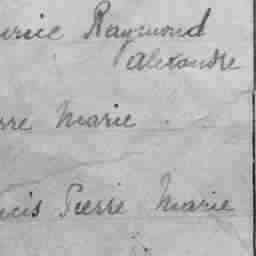 urice Raymond
Alexandre
rre Marie
ncis Pierre Marie